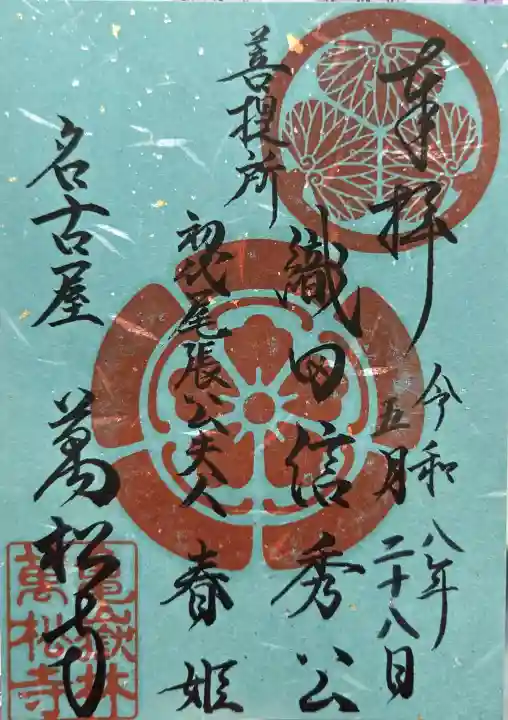 奉拝
令和八年
五月二十八日
菩提所
織田信秀公
初代尾張公夫人 春姫
名古屋 萬松寺
亀嶽林
萬松寺